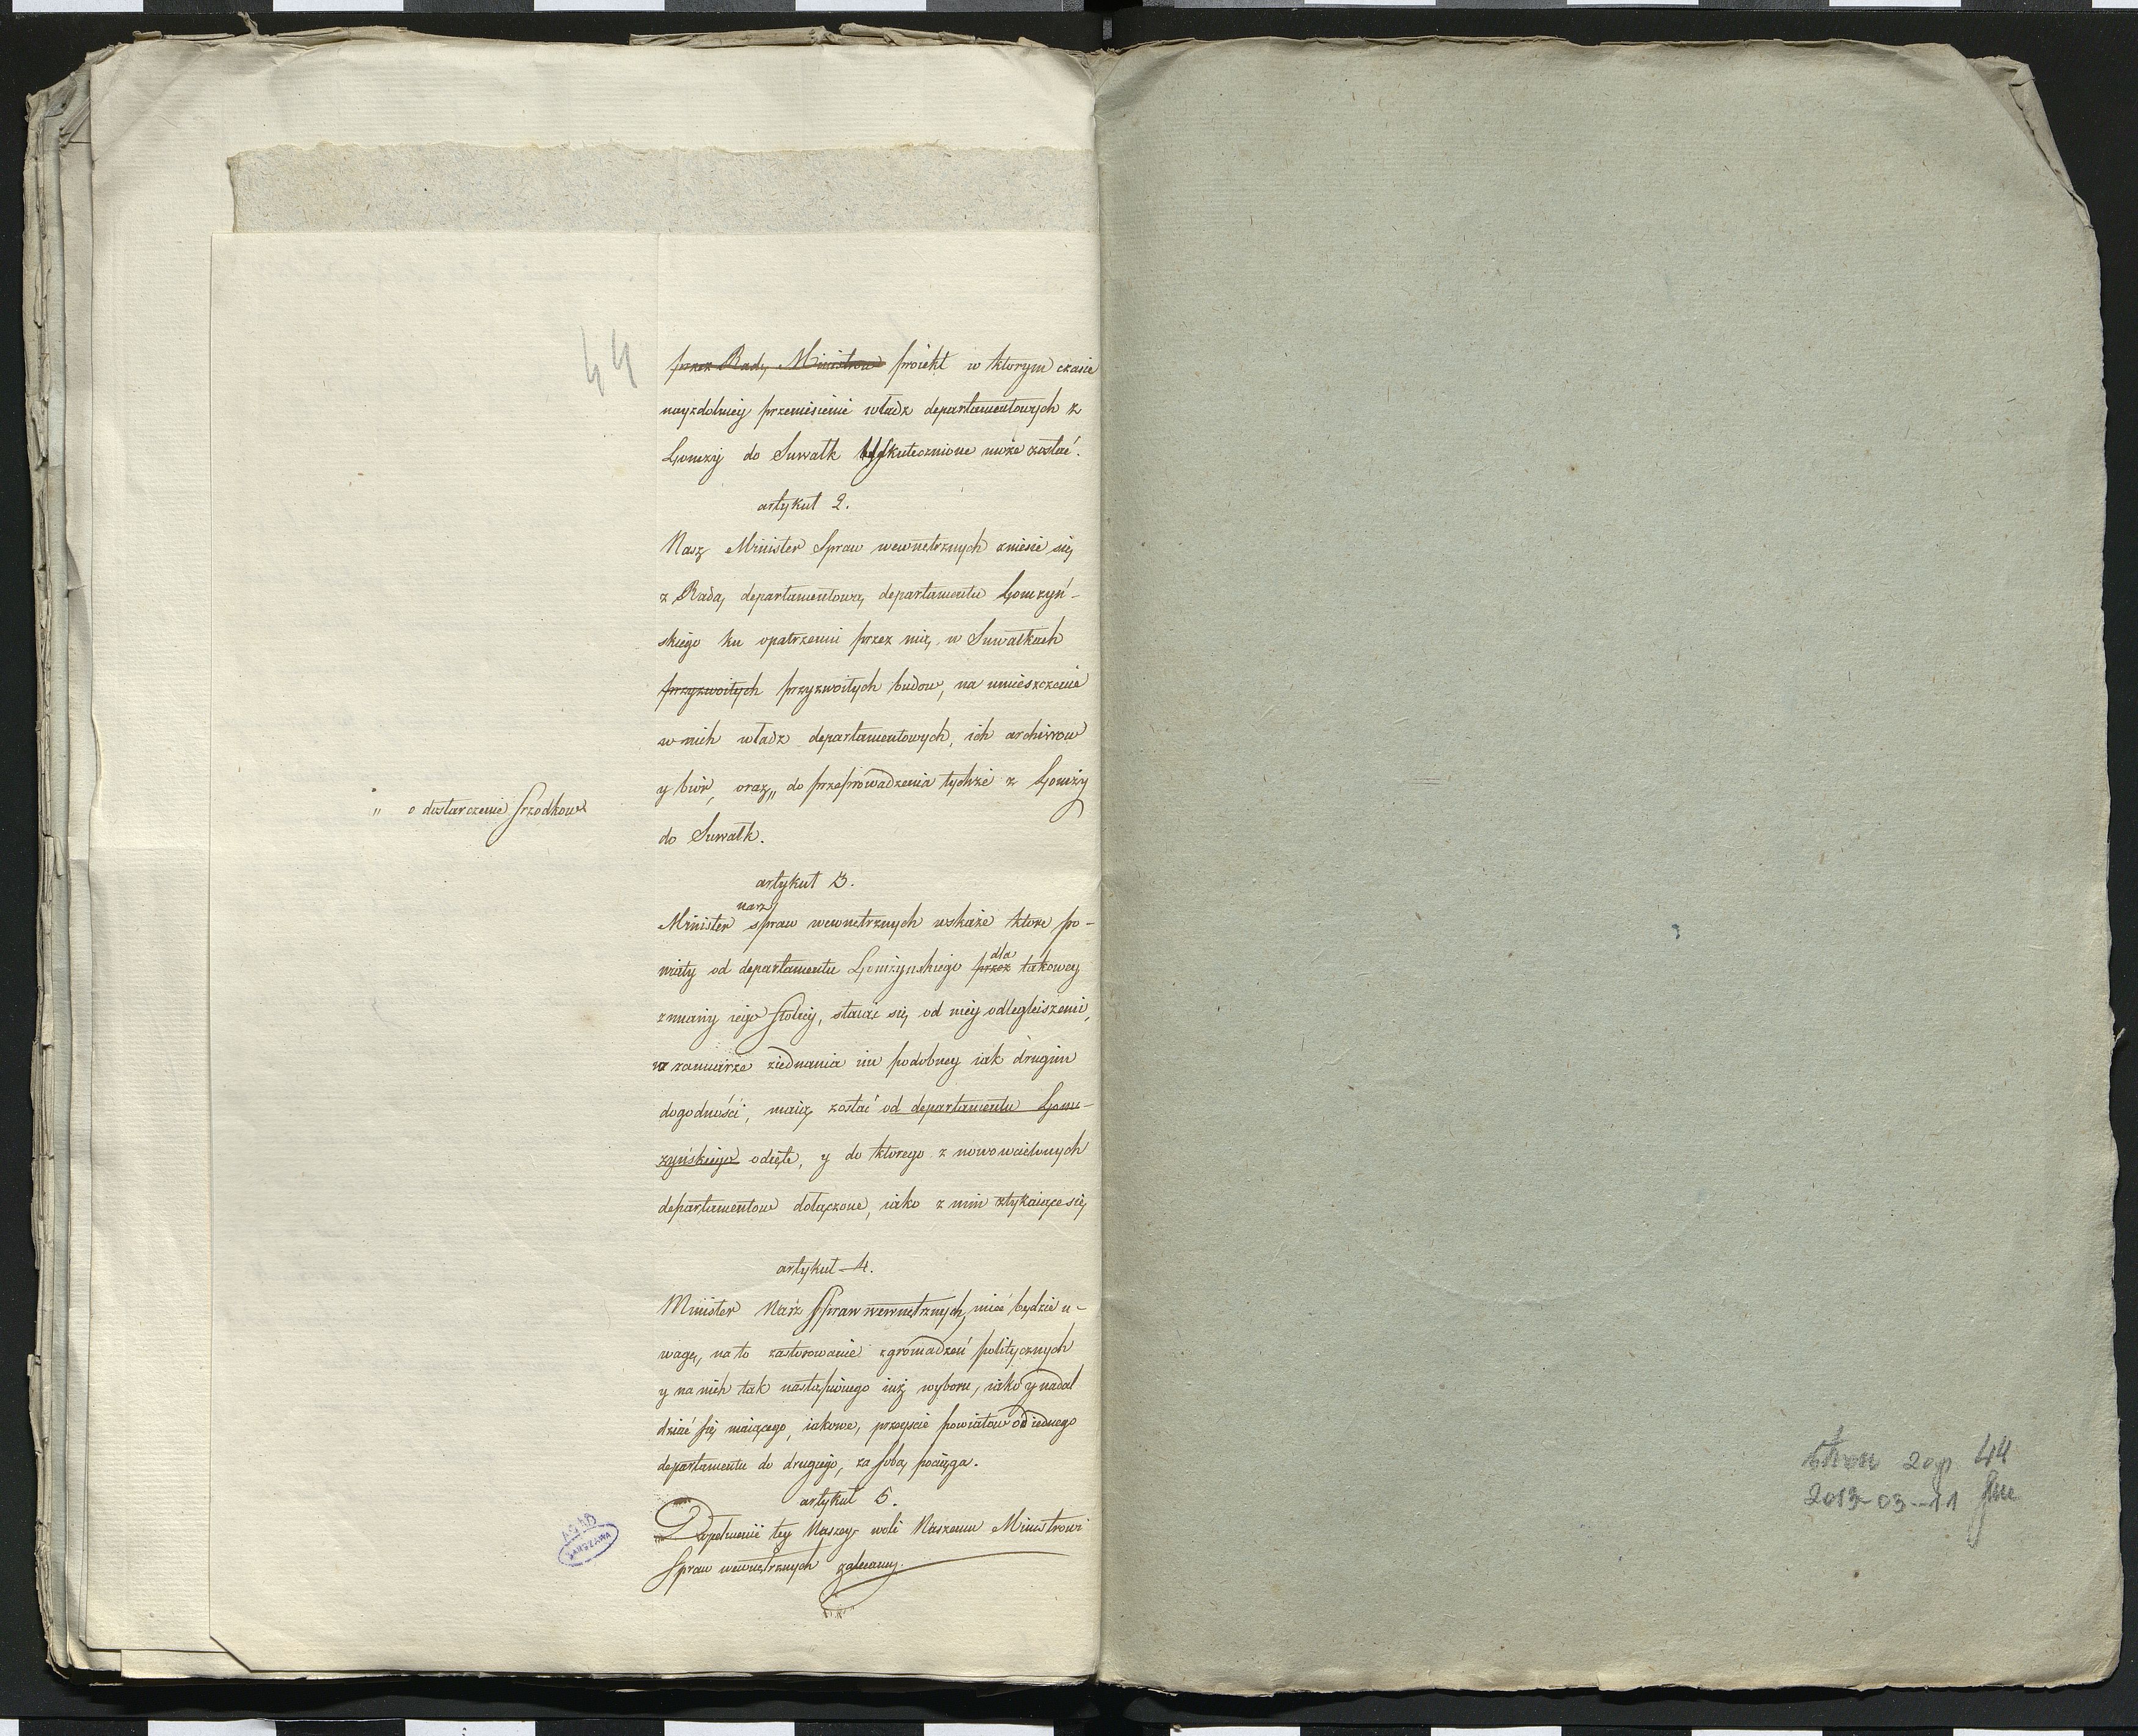 44
przez Radę Ministrow proiekt w ktorym czasie
nayzdolniey przeniesienie władz departamentowych z
Łomży do Suwałk uskutecznione może zostać.
artykuł 2.
Nasz Minister Spraw wewnetrznych zniesie się
z Radą departamentową departamentu Łomżyń-
skiego ku opatrzeniu przez nię w Suwałkach
przyzwoitych przyzwoitych budow, na umieszczenie
w nich władz departamentowych, ich archiwow
y biór, oraz „ do przeprowadzenia tychże z Łomży
„ o dostarczenie srzodkow
do Suwałk.
artykuł 3.
nasz
Minister spraw wewnetrznych wskaże ktore po-
dla
wiaty od departamentu Łomżynskiego przez takowey
zmiany iego stolicy, staiąc się od niey odlegleiszemi,
w zamiarze ziednania im podobney iak drugim
dogodności, maią zostać od departamentu Łom-
żyńskiego odięte, y do ktorego z nowowcielonych
departamentow dołączone, iako z nim stykaiące się
artykuł 4.
Minister Nasz Spraw wewnetrznych, mieć będzie u-
wagę, na to zastosowanie zgromadzeń politycznych
y na nich tak nastąpionego iuż wyboru, iako y nadal
dziać się maiącego, iakowe, przeyscie powiatow od iednego
departamentu do drugiego, za sobą pociąga.
artykuł 5.
Dopełnienie tey Naszey woli Naszemu Ministrowi
Spraw wewnętrznych zalecamy.
AGAD
WARSZAWA
stron zap 44
2013-03-11